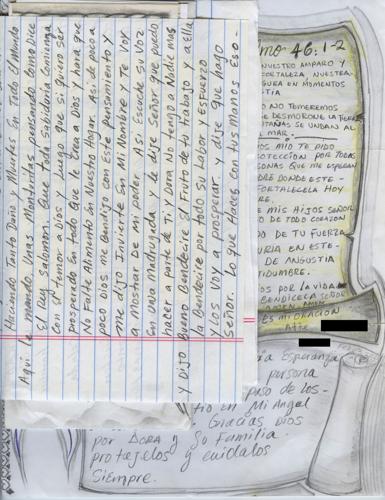 Haciendo tanto Daño y Muertes En Todo El Mundo
Aqui le mando Unas Monduras pensando como Dice
El rey Salomon. Que toda Sabiduria Comienza
Con El temor a Dios luego que si quiero ser
prosperado En todo que le crea a Dios y hara que
No Falte Alimento En Nuestro Hogar. Asi de poco a
poco Dios me Bendijo con Este pensamiento y
me dijo Invierte En Mi Nombre y Te Voy
a Mostrar De mi poder. Asi Escuche Su Voz
En Una Madrugada y le dije Señor que puedo
hacer a parte de Ti y Dora No tengo a Nadie mas
y Dijo Bueno Bendecire El Fruto de tu trabajo y a Ella
la Bendecire por todo Su Labor y Esfuerzo
y Los Voy a prosperar. y dije que hago
Señor. Lo que Haces con tus Manos Eso-
46:1-2
NUESTRO AMPARO Y
FORTALEZA NUESTRA
EN MOMENTOS
NO TEMEREMOS
SE DESMORONE LA TIERRA
SE UNDAN AL
MAR.
DIOS MIO TE PIDO
PROTECCION POR TODAS
QUE ME ESPERAN
DONDE ESTE
FORTALECELA HOY
MIS HIJOS SEÑOR
DE TODO CORAZON
DE TU FUERZA
EN ESTE-
DE ANGUSTIA
POR LA VIDA
BENDICELA SEÑOR
AMEN
ES MI ORACION
Atte
Esperanza
persona
paso de los-
en Mi Angel
Gracias Dios
por Dora y Su Familia.
protejelos y cuidalos
Siempre.